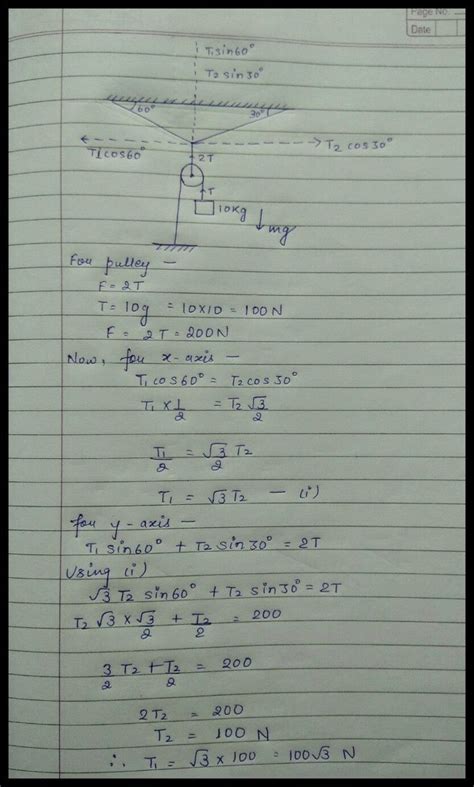 Page No.
Date
T₁sin60°
T₂ sin30°
60° 30°
T₁cos60° T₂ cos30°
2T
T
10kg
mg
For pulley —
F = 2T
T = 10g = 10×10 = 100N
F = 2T = 200N
Now, for x-axis —
T₁ cos60° = T₂ cos30°
T₁ × 1/2 = T₂ √3/2
T₁/2 = √3/2 T₂
T₁ = √3 T₂ — (i)
for y-axis —
T₁ sin60° + T₂ sin30° = 2T
Using (i)
√3 T₂ sin60° + T₂ sin30° = 2T
T₂ √3 × √3/2 + T₂/2 = 200
3/2 T₂ + T₂/2 = 200
2T₂ = 200
T₂ = 100 N
∴ T₁ = √3 × 100 = 100√3 N